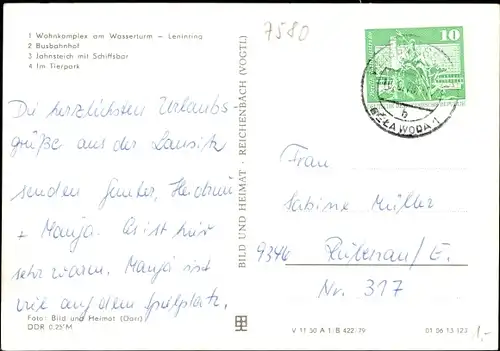 1 Wohnkomplex am Wasserturm – Leninring
2 Busbahnhof
3 Jahnsteich mit Schiffsbar
4 Im Tierpark
7580
10
BĚŁA WODA 1
h
Die herzlichsten Urlaubs-
grüße aus der Lausitz
senden Günter, Heidrun
+ Manja. Es ist hier
sehr warm. Manja ist
viel auf dem Spielplatz.
Foto: Bild und Heimat (Darr)
DDR 0,25 M
BILD UND HEIMAT · REICHENBACH (VOGTL)
Frau
Sabine Müller
9346 Rübenau/E.
Nr. 317
V 11 50 A 1/B 422/79
01 06 13 123
1,-